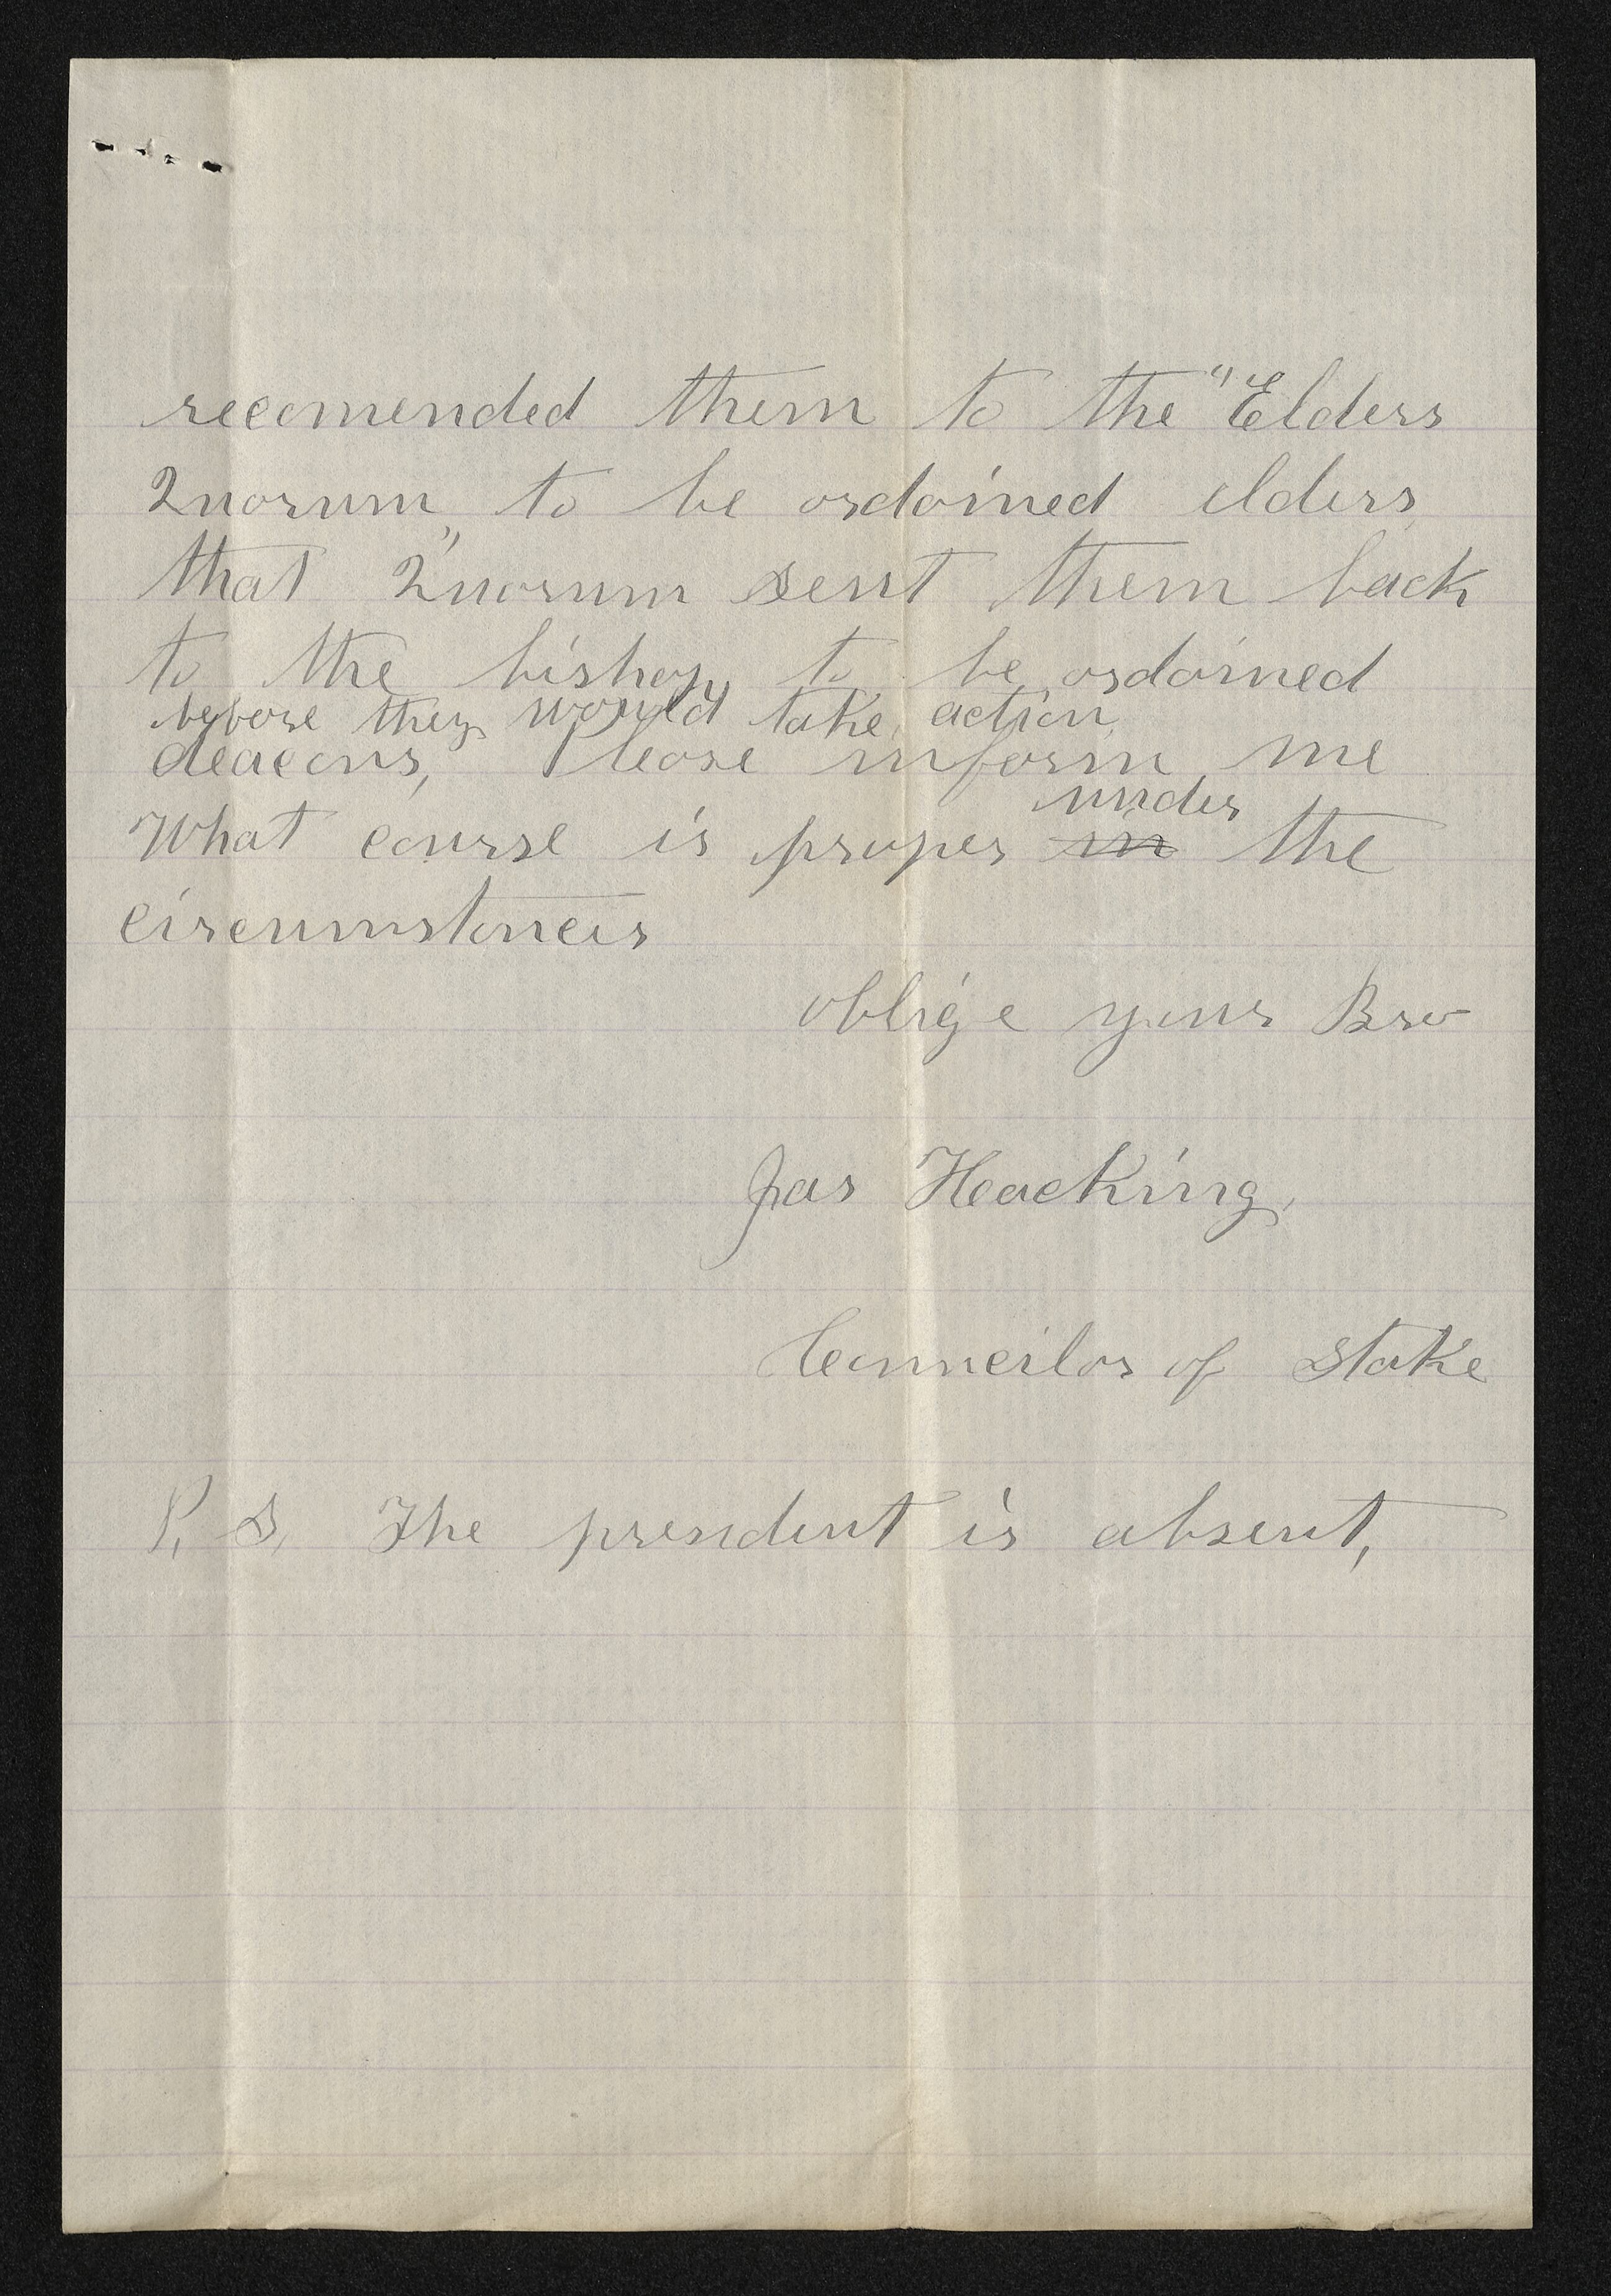 recomended them to the "Elders
Quorum" to be ordained elders,
that Quorum sent them back
to the bishop to be ordained
before they would take action,
deacons, Please inform me
under
What course is proper in the
circumstances
oblige your Bro
Jas Hacking,
Councilor of Stake
P, S, The president is absent,